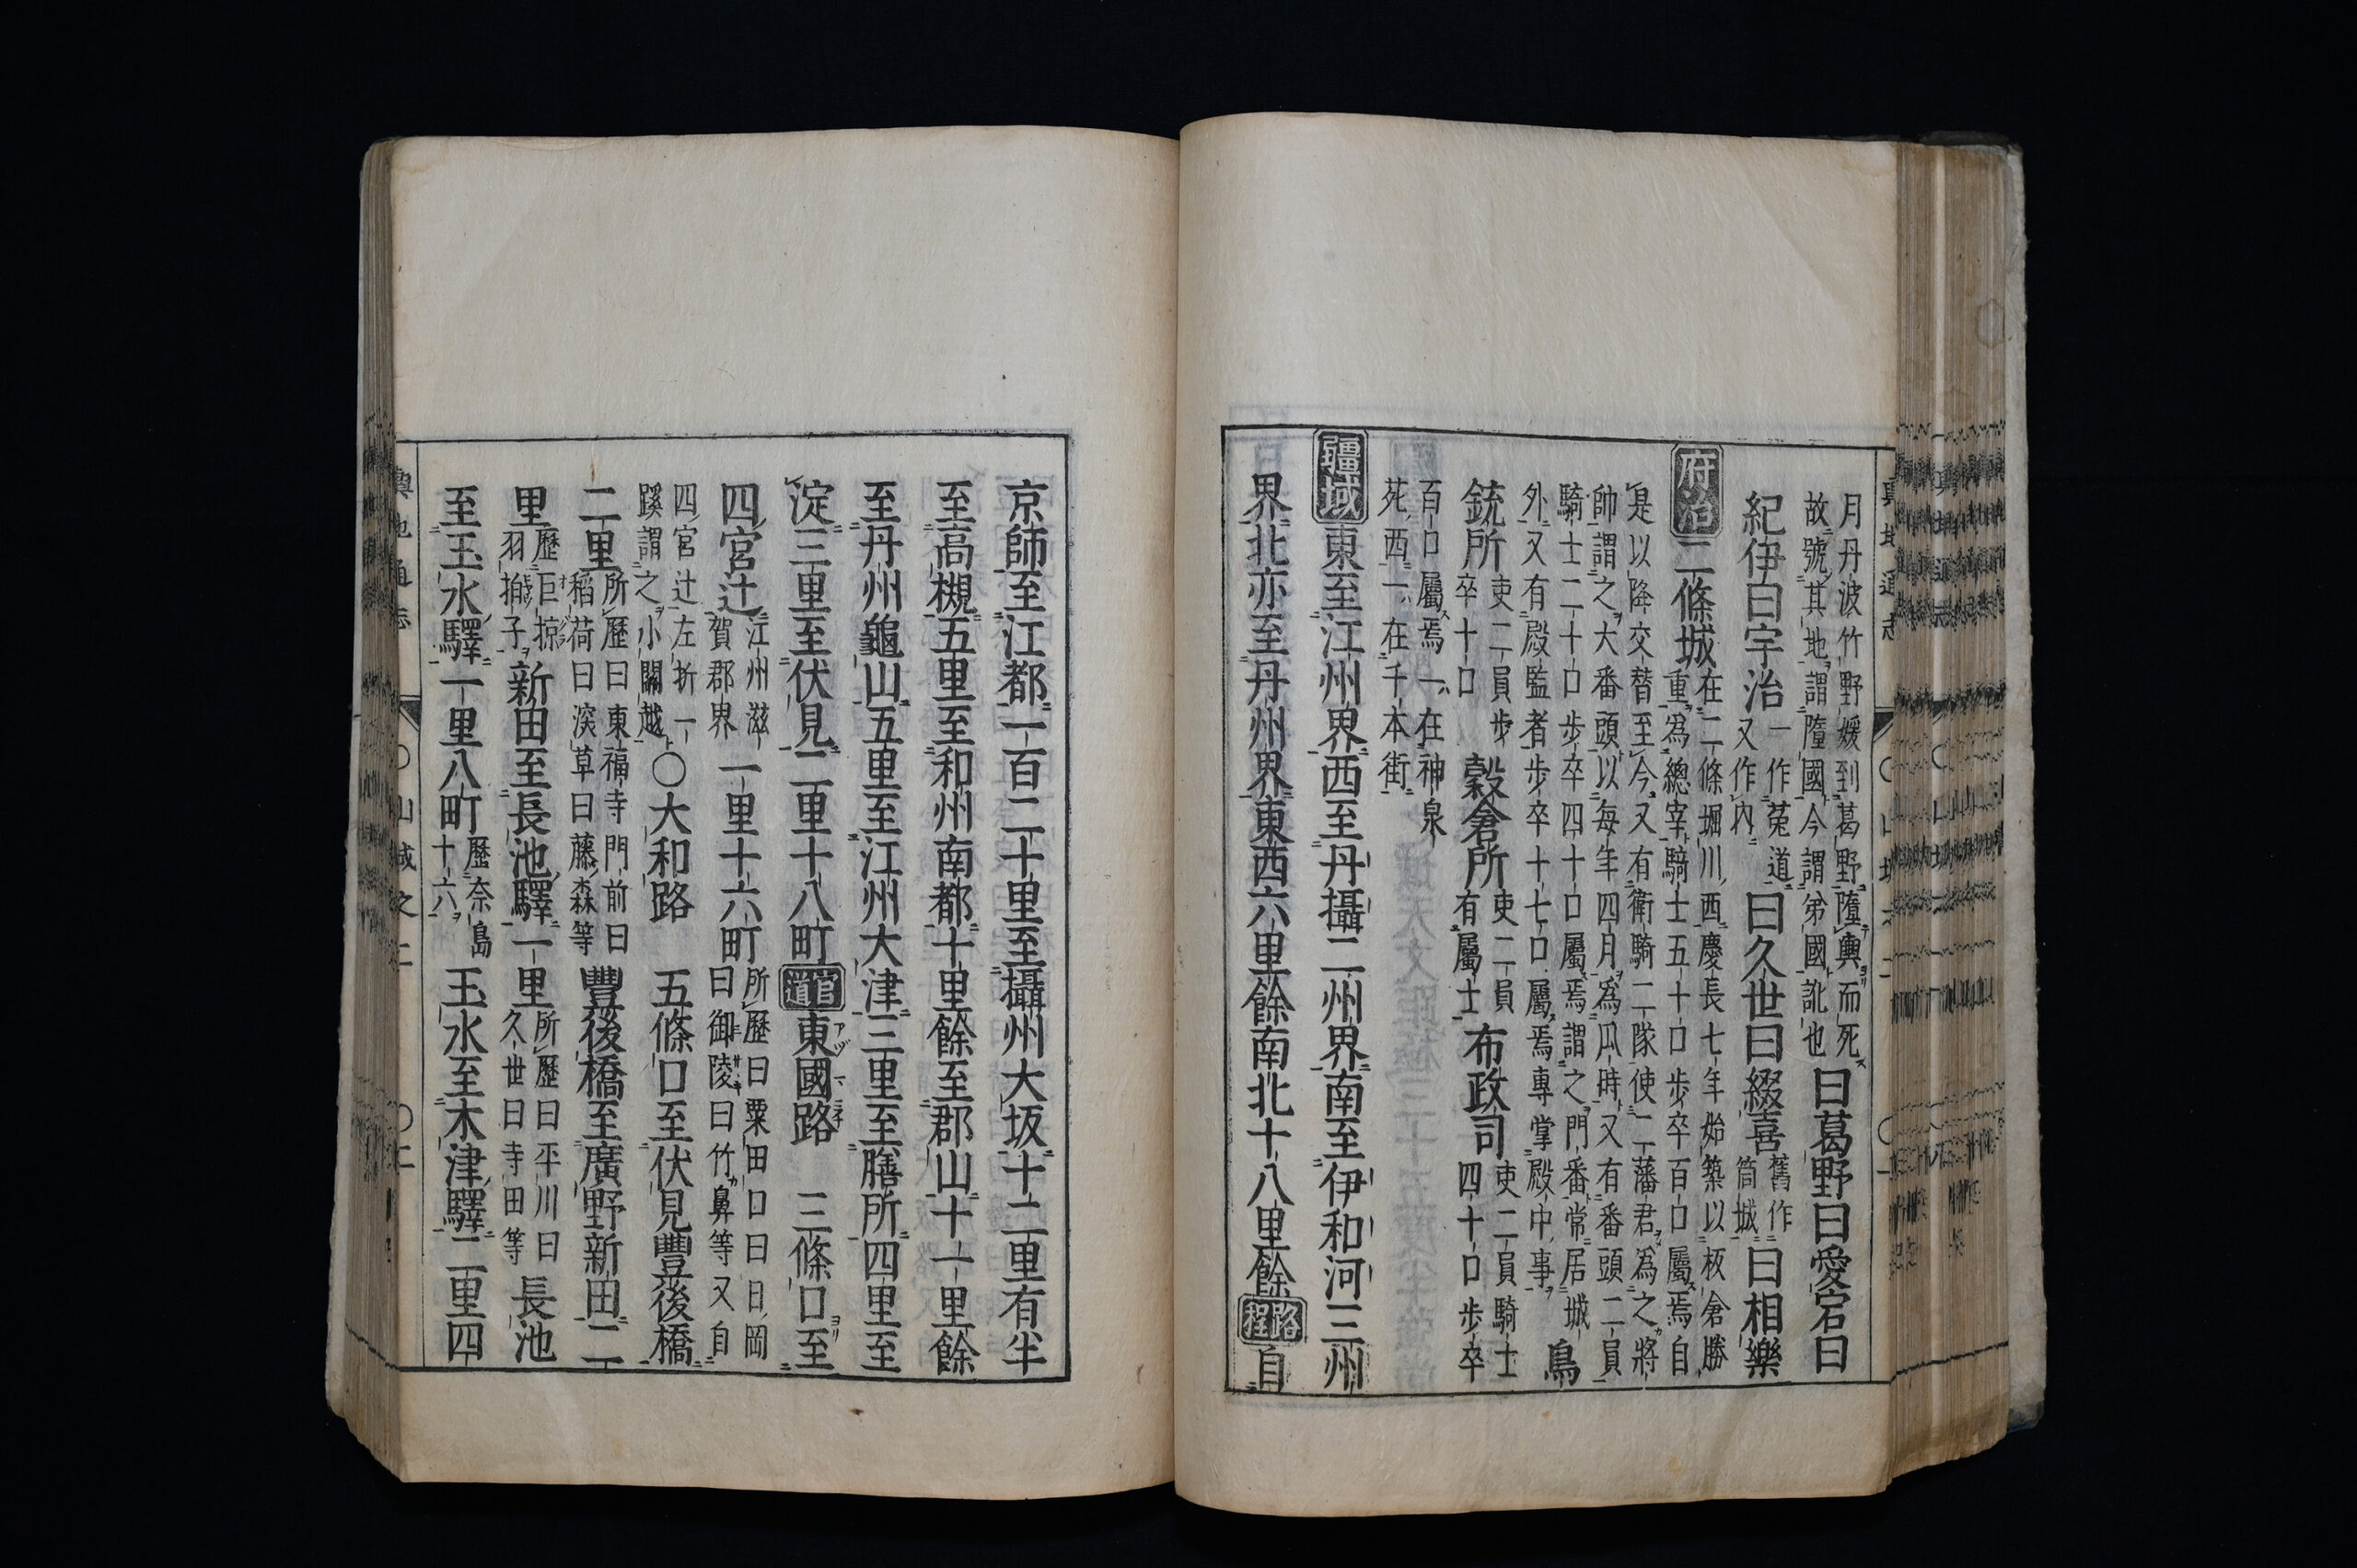 輿地通志 ○山城之二
月丹波竹野媛到葛野墮輿而死
故號其地謂墮國今謂弟國訛也
曰葛野曰愛宕曰
紀伊曰宇治
一作菟道
又作內
曰久世曰綴喜
舊作
筒城
曰相樂
府治
二條城
在二條堀川西慶長七年始築以板倉勝
重為總宰騎士五十口步卒百口屬焉自
是以降交替至今又有衛騎二隊使二藩君為之將
帥謂之大番頭以每年四月為瓜時又有番頭二員
騎士二十口步卒四十口屬焉謂之門番常居城
外又有殿監者步卒十七口屬焉專掌殿中事
鳥
銃所
吏二員步
卒十口
穀倉所
吏二員
有屬士
布政司
吏二員騎士
四十口步卒
百口屬焉一在神泉
苑西一在千本街
疆域
東至江州界西至丹攝二州界南至伊和河三州
界北亦至丹州界東西六里餘南北十八里餘
路程
自
京師至江都一百二十里至攝州大坂十二里有半
至高槻五里至和州南都十里餘至郡山十一里餘
至丹州龜山五里至江州大津三里至膳所四里至
淀三里至伏見二里十八町
官道
東國路 三條口至
四宮辻
江州滋
賀郡界
一里十六町
所歷曰粟田口曰日岡
曰御陵曰竹鼻等又自
四宮辻左折一
蹊謂之小關越
○大和路 五條口至伏見豐後橋
二里
所歷曰東福寺門前曰
稻荷曰深草曰藤森等
豐後橋至廣野新田二
里
歷巨掠
羽拍子
新田至長池驛一里
所歷曰平川曰
久世曰寺田等
長池
至玉水驛一里八町
歷奈島
十六
玉水至木津驛二里四
輿地通志 ○山城之二